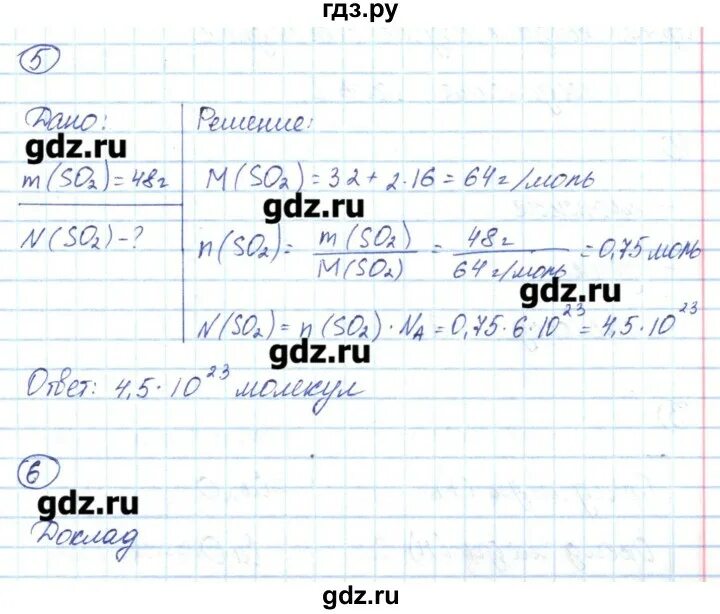 гдз.ру
5
Дано:
Решение:
gdz.ru
m(SO₂)=48г
M(SO₂)=32+2·16=64г/моль
gdz.ru
N(SO₂)-?
n(SO₂)= m(SO₂)/M(SO₂) = 48г/64г/моль =0,75моль
gdz.ru
N(SO₂)=n(SO₂)·Nᴀ=0,75·6·10²³=4,5·10²³
gdz.ru
Ответ: 4,5·10²³ молекул
6
gdz.ru
Доклад
gdz.ru